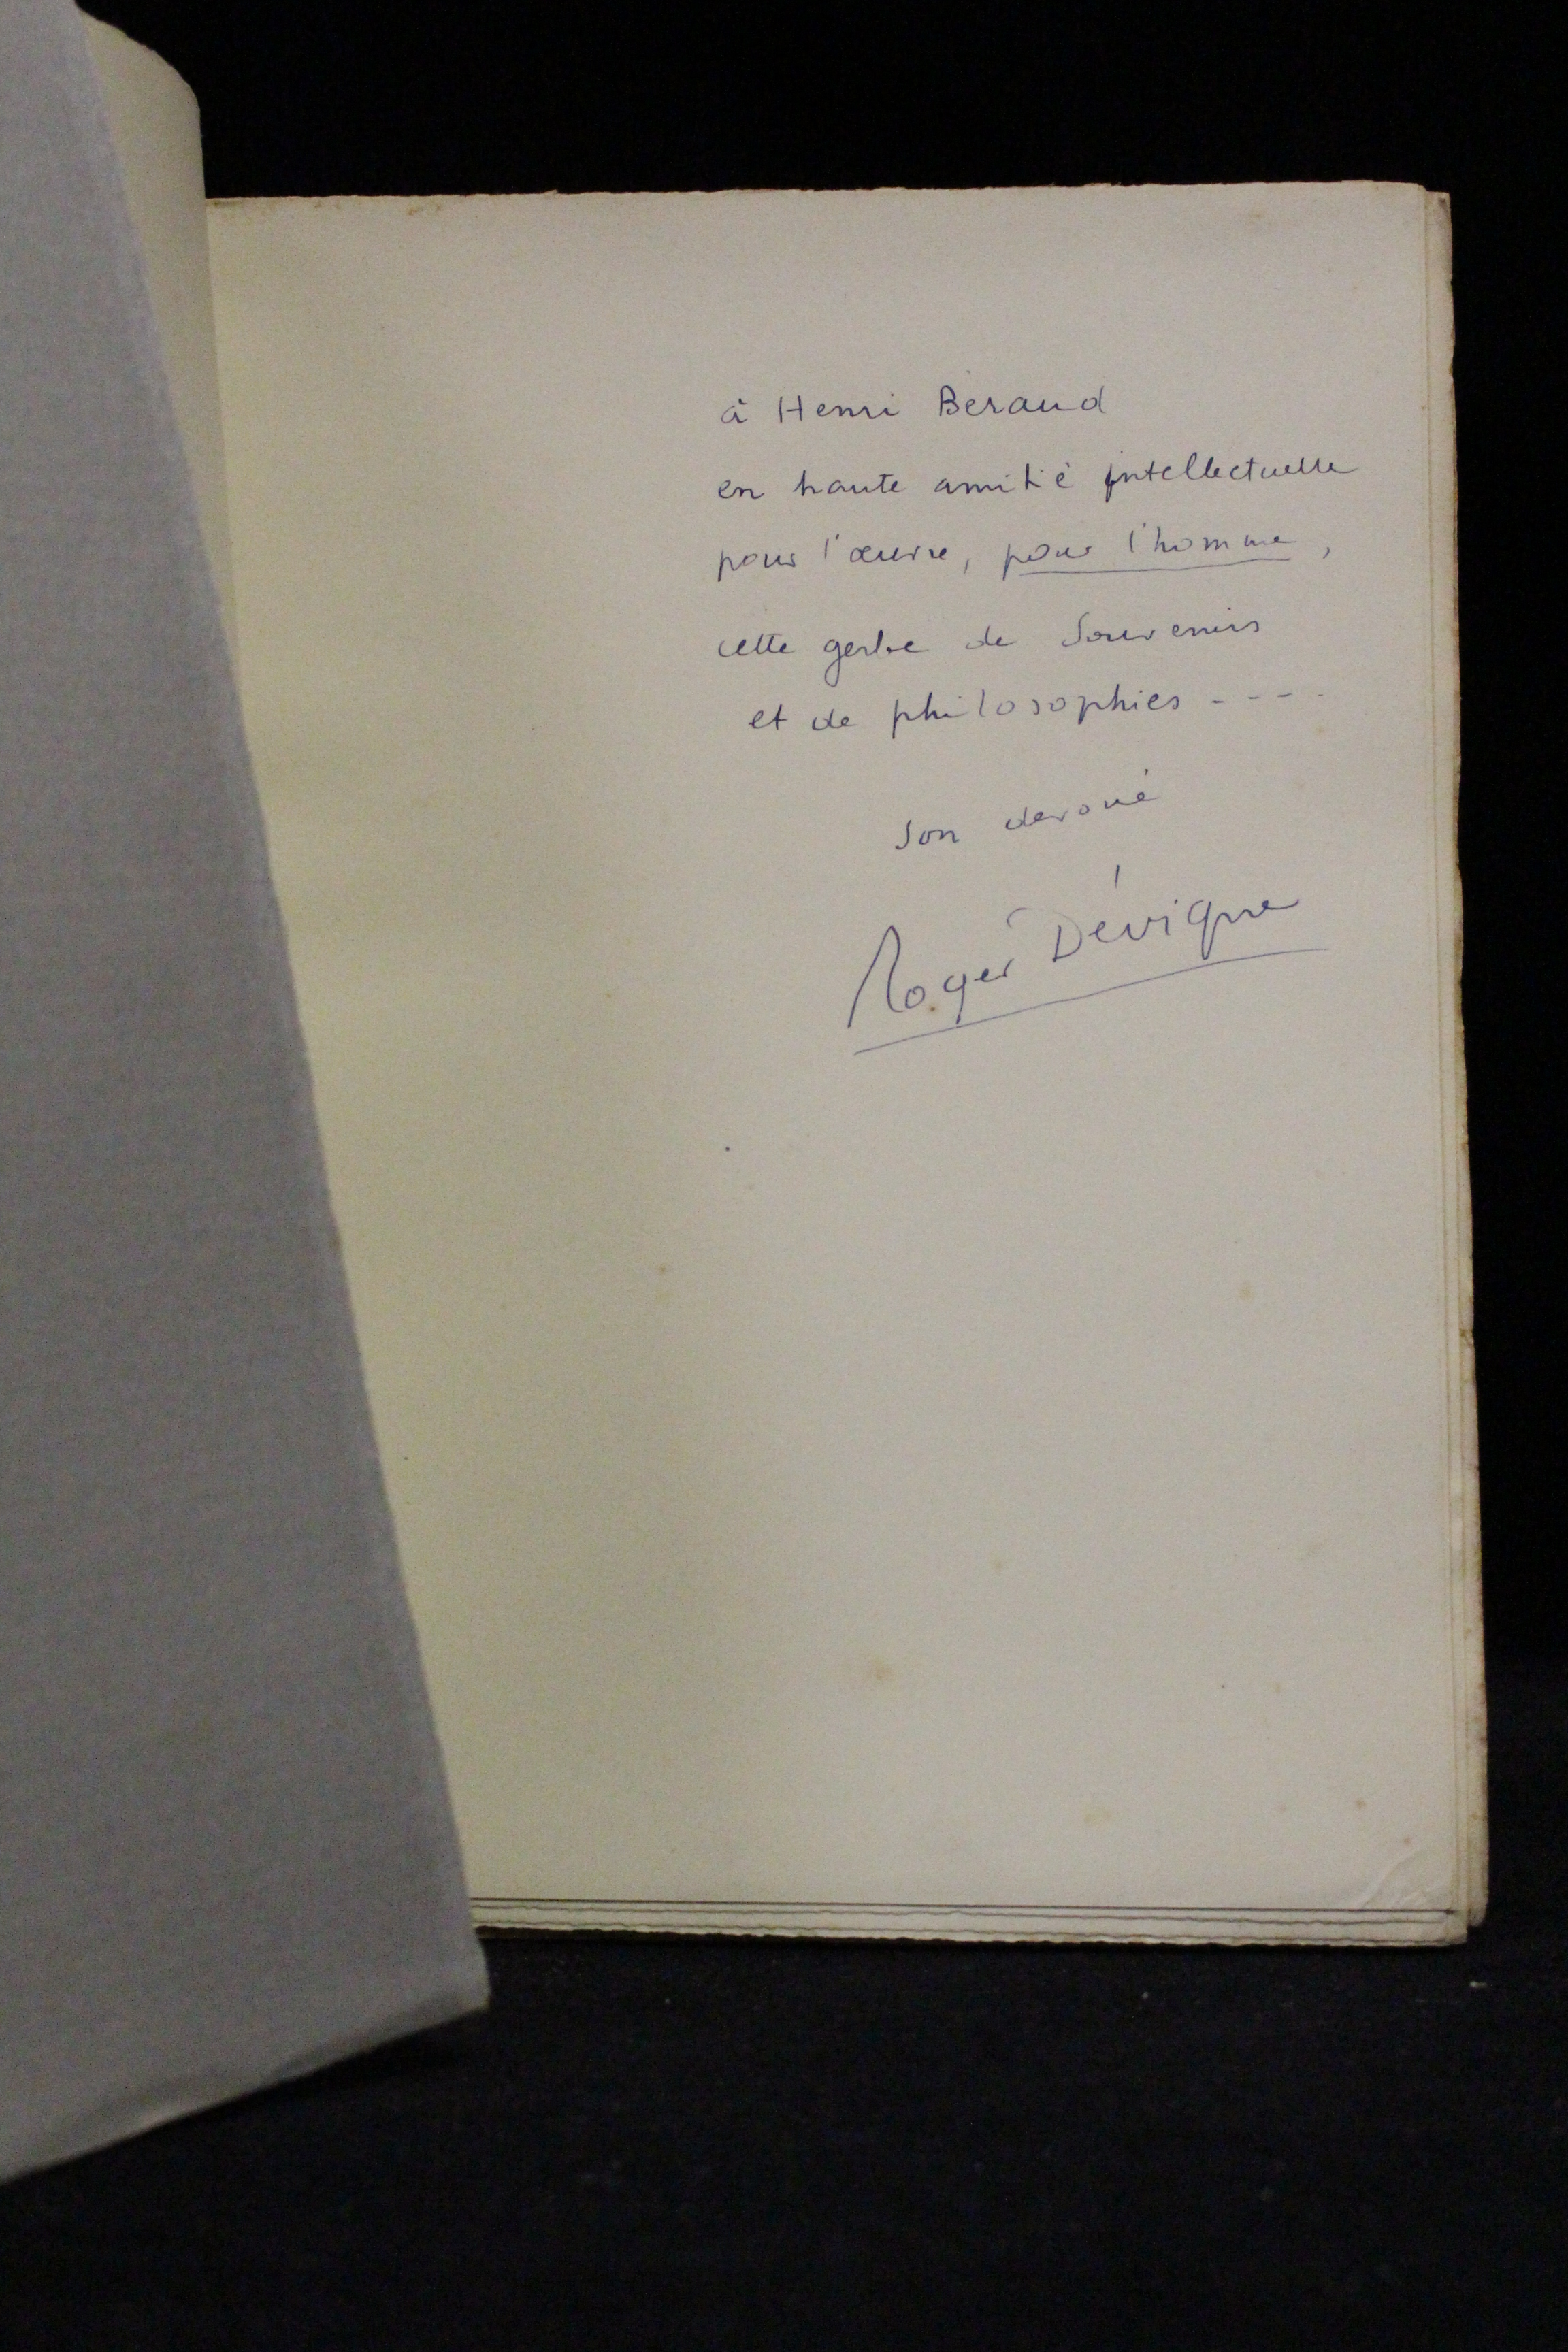 à Henri Beraud
en haute amitié intellectuelle
pour l'œuvre, pour l'homme,
cette gerbe de Souvenirs
et de philosophies - - - .
Son devoué
Roger Dévigne